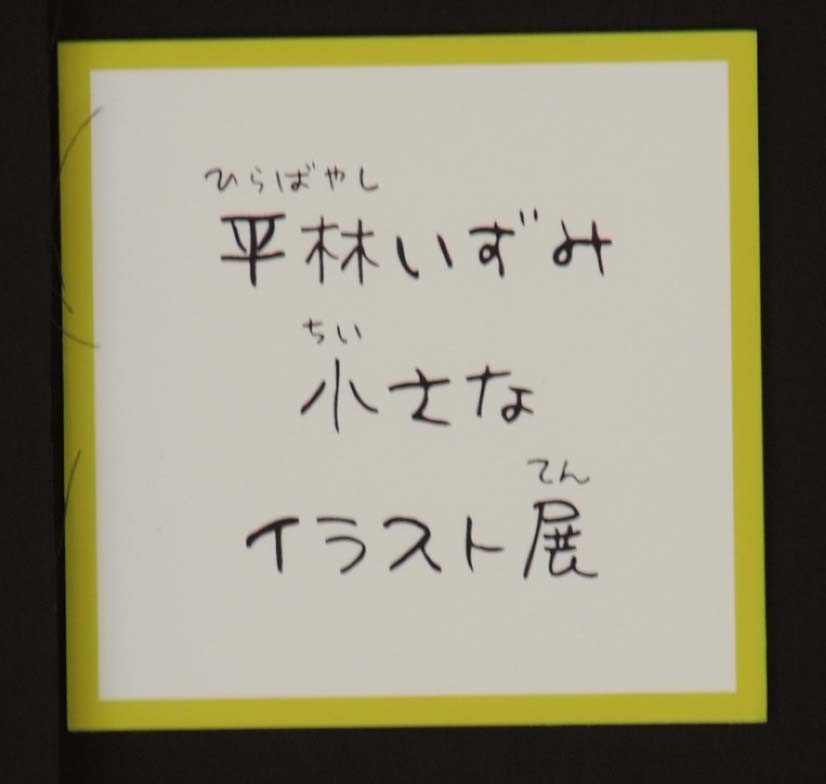 ひらばやし
平林いずみ
ちい
小さな
てん
イラスト展